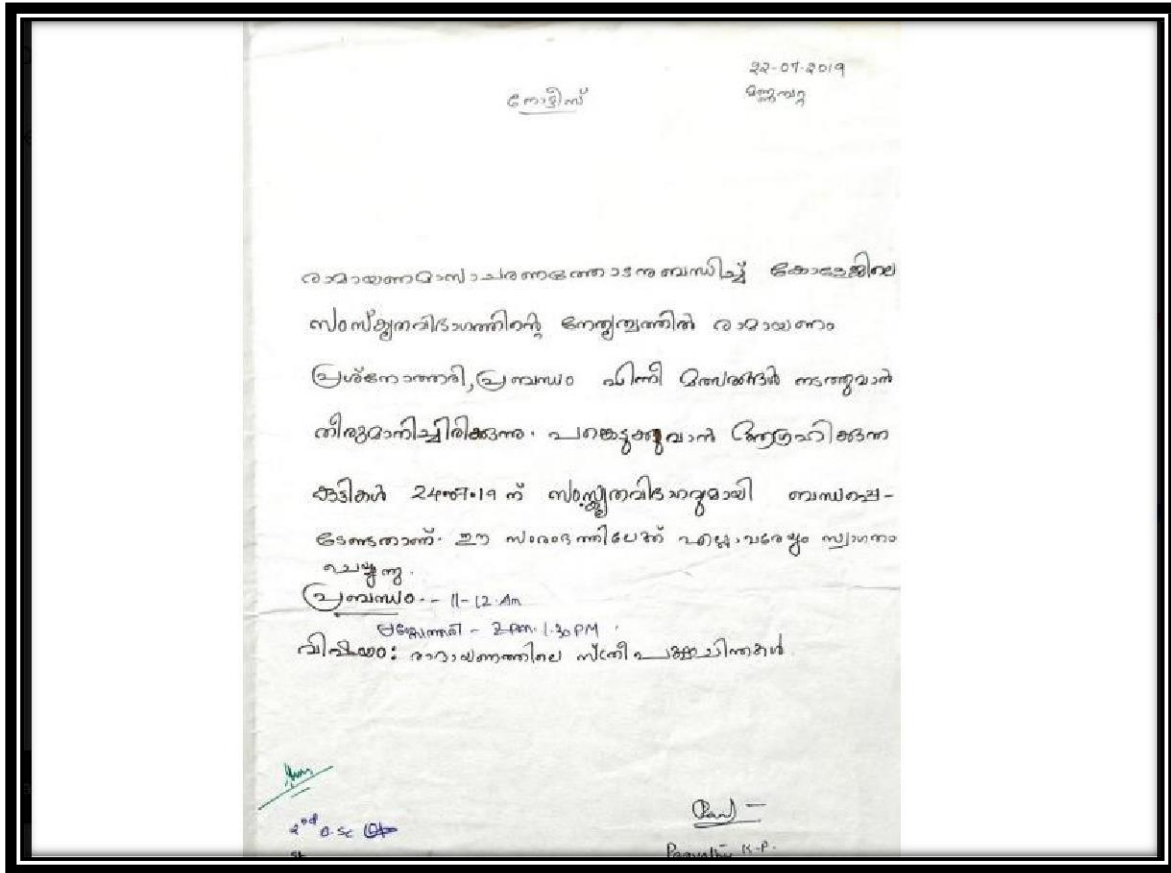 22-07-2019
നോട്ടീസ്
മണ്ണമ്പറ്റ
രാമായണമാസാചരണത്തോടനുബന്ധിച്ച് കോളേജിലെ
സംസ്കൃതവിഭാഗത്തിന്റെ നേതൃത്വത്തിൽ രാമായണം
പ്രശ്നോത്തരി, പ്രബന്ധം എന്നീ മത്സരങ്ങൾ നടത്തുവാൻ
തീരുമാനിച്ചിരിക്കുന്നു. പങ്കെടുക്കുവാൻ ആഗ്രഹിക്കുന്ന
കുട്ടികൾ 24-07-19 ന് സംസ്കൃതവിഭാഗവുമായി ബന്ധപ്പെ-
ടേണ്ടതാണ്. ഈ സംരംഭത്തിലേക്ക് എല്ലാവരേയും സ്വാഗതം
ചെയ്യുന്നു.
പ്രബന്ധം - 11-12 Am
പ്രശ്നോത്തരി - 1.30 PM
വിഷയം: രാമായണത്തിലെ സ്ത്രീപക്ഷചിന്തകൾ
2nd B.Sc
K.P.